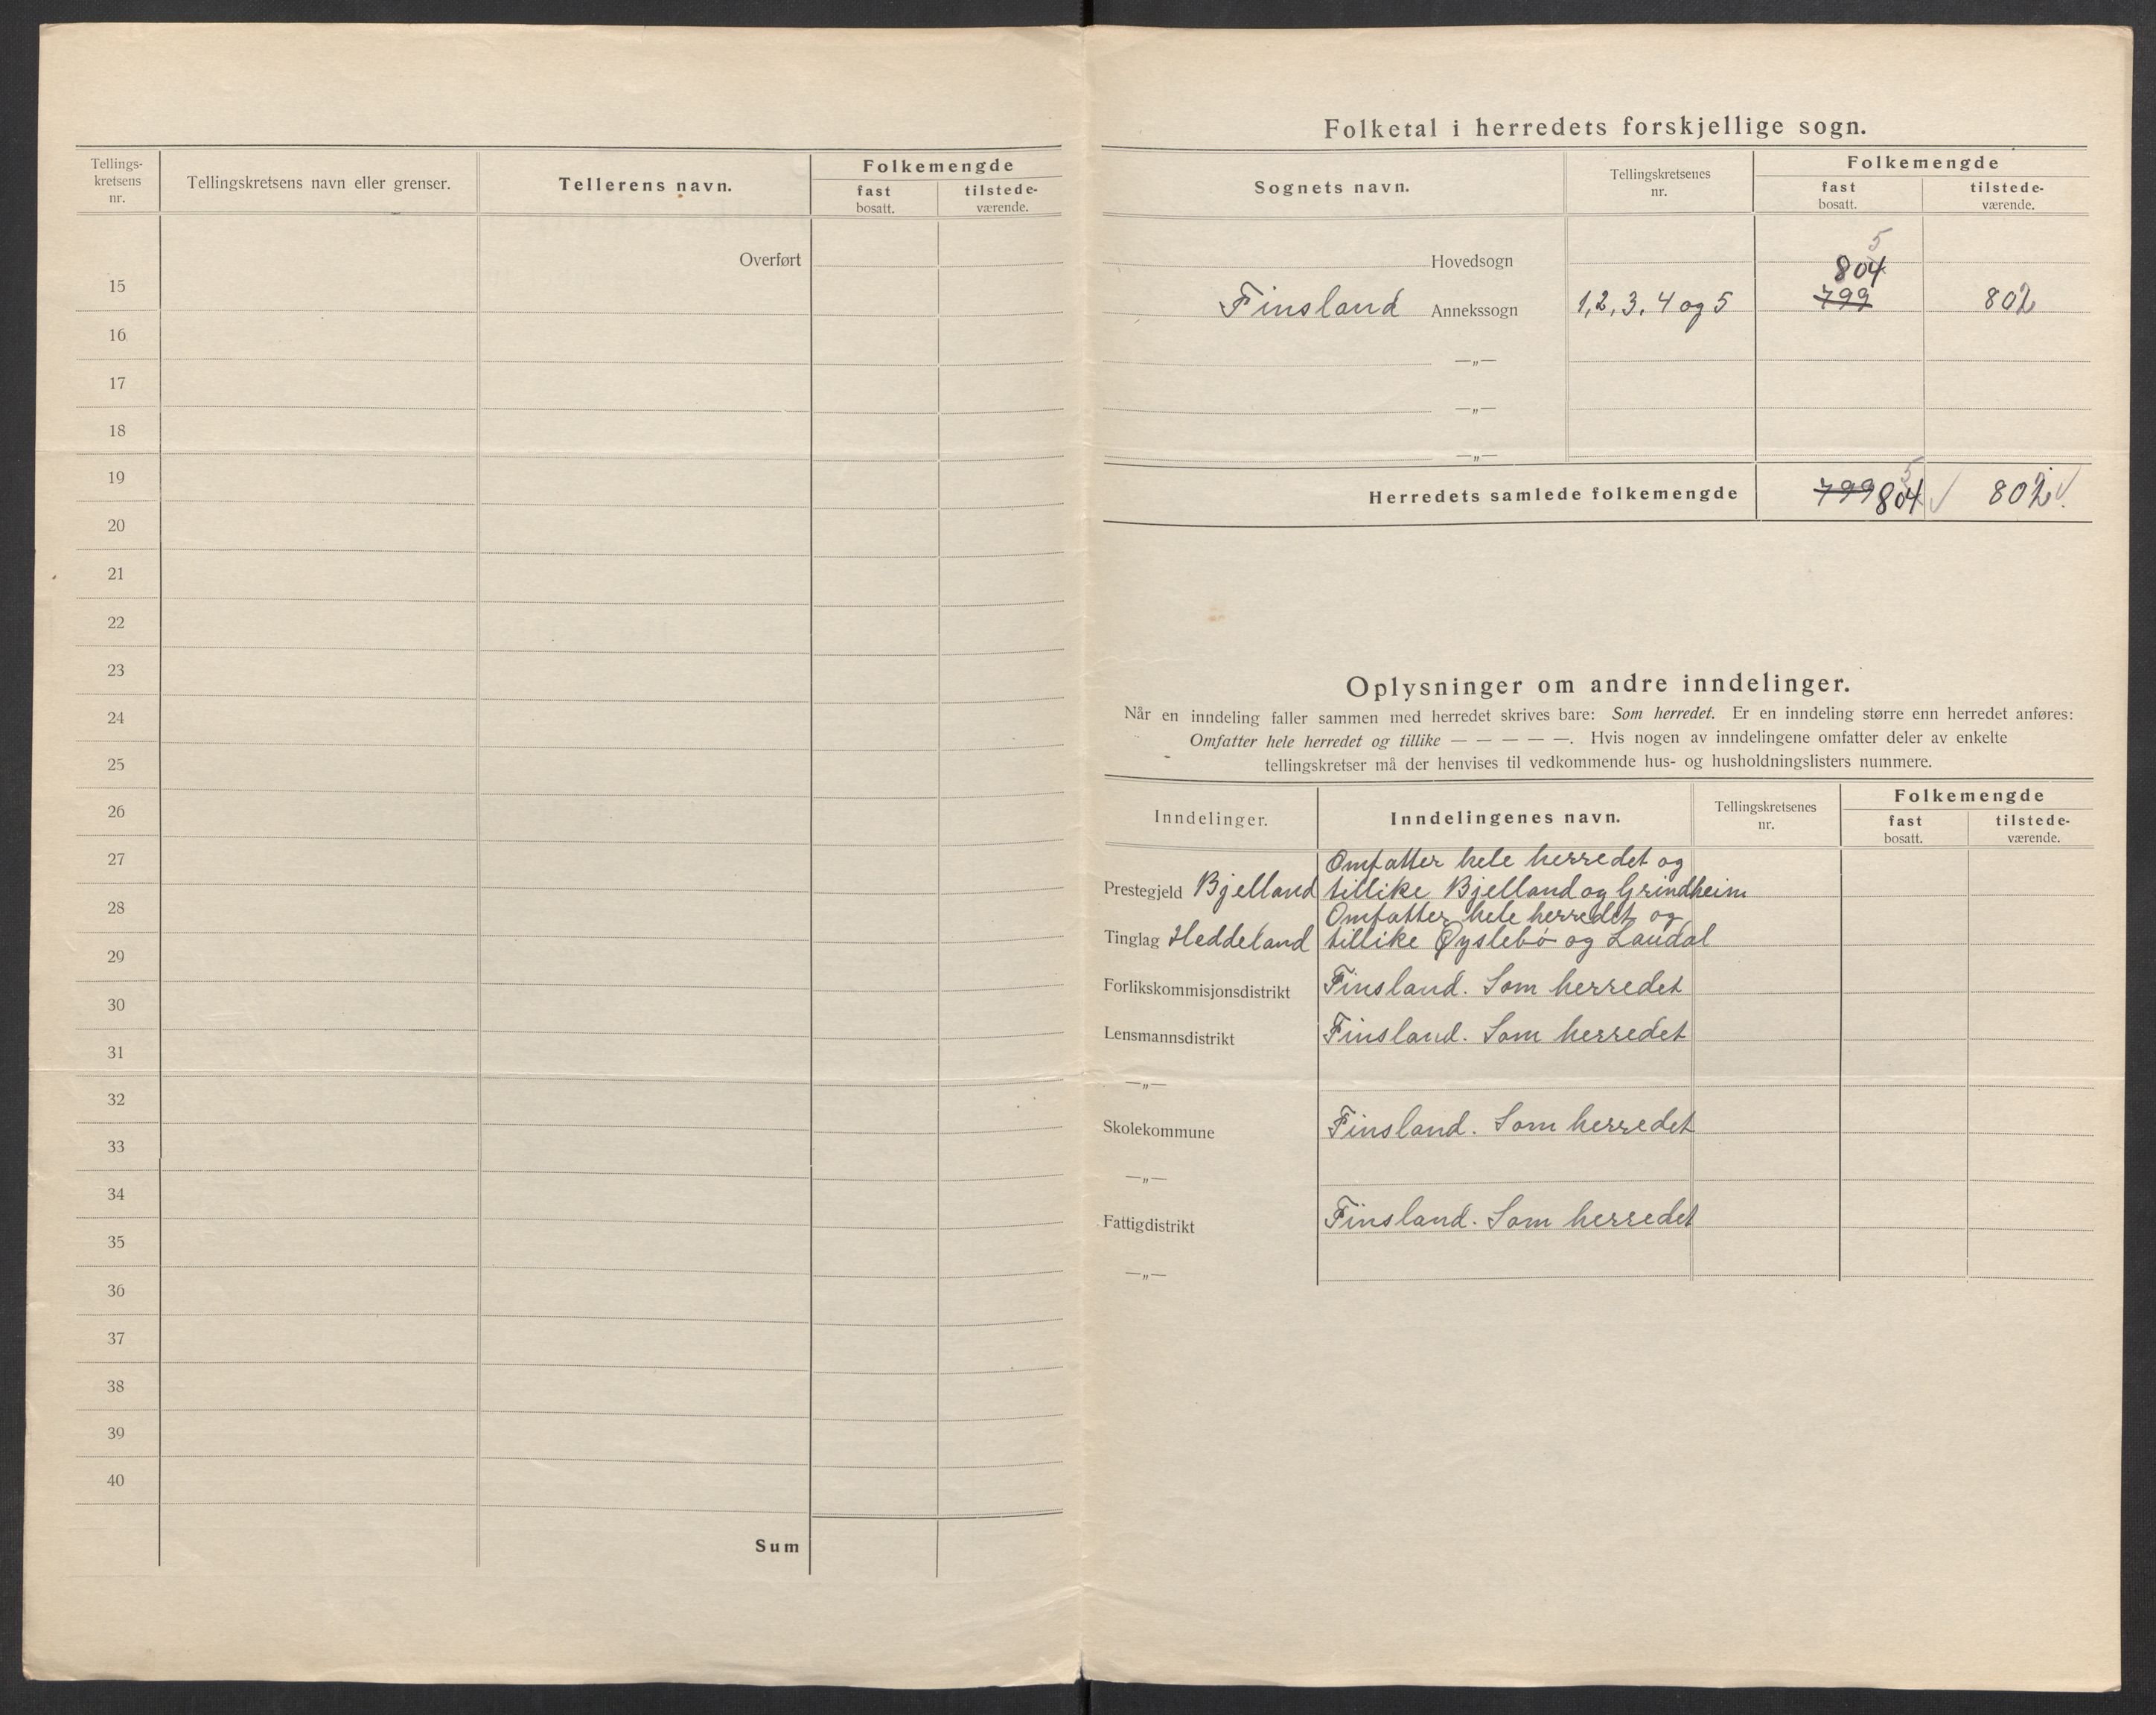 Tellings-
kretsens
nr.
Tellingskretsens navn eller grenser.
Tellerens navn.
Folkemengde
fast
bosatt.
tilstede-
værende.
Overført
15
16
17
18
19
20
21
22
23
24
25
26
27
28
29
30
31
32
33
34
35
36
37
38
39
40
Sum
Folketal i herredets forskjellige sogn.
Sognets navn.
Tellingskretsenes
nr.
Folkemengde
fast
bosatt.
tilstede-
værende.
Hovedsogn
5
804
Finsland Annekssogn 1, 2, 3, 4 og 5 799 802
—„—
—„—
—„—
5
Herredets samlede folkemengde 799 804 802
Oplysninger om andre inndelinger.
Når en inndeling faller sammen med herredet skrives bare: Som herredet. Er en inndeling større enn herredet anføres:
Omfatter hele herredet og tillike — — — — —. Hvis nogen av inndelingene omfatter deler av enkelte
tellingskretser må der henvises til vedkommende hus- og husholdningslisters nummere.
Inndelinger.
Inndelingenes navn.
Tellingskretsenes
nr.
Folkemengde
fast
bosatt.
tilstede-
værende.
Omfatter hele herredet og
Prestegjeld Bjelland tillike Bjelland og Grindheim
Omfatter hele herredet og
Tinglag Heddeland tillike Øyslebö og Laudal
Forlikskommisjonsdistrikt Finsland. Som herredet
Lensmannsdistrikt Finsland. Som herredet
—„—
Skolekommune Finsland. Som herredet
—„—
Fattigdistrikt Finsland. Som herredet
—„—